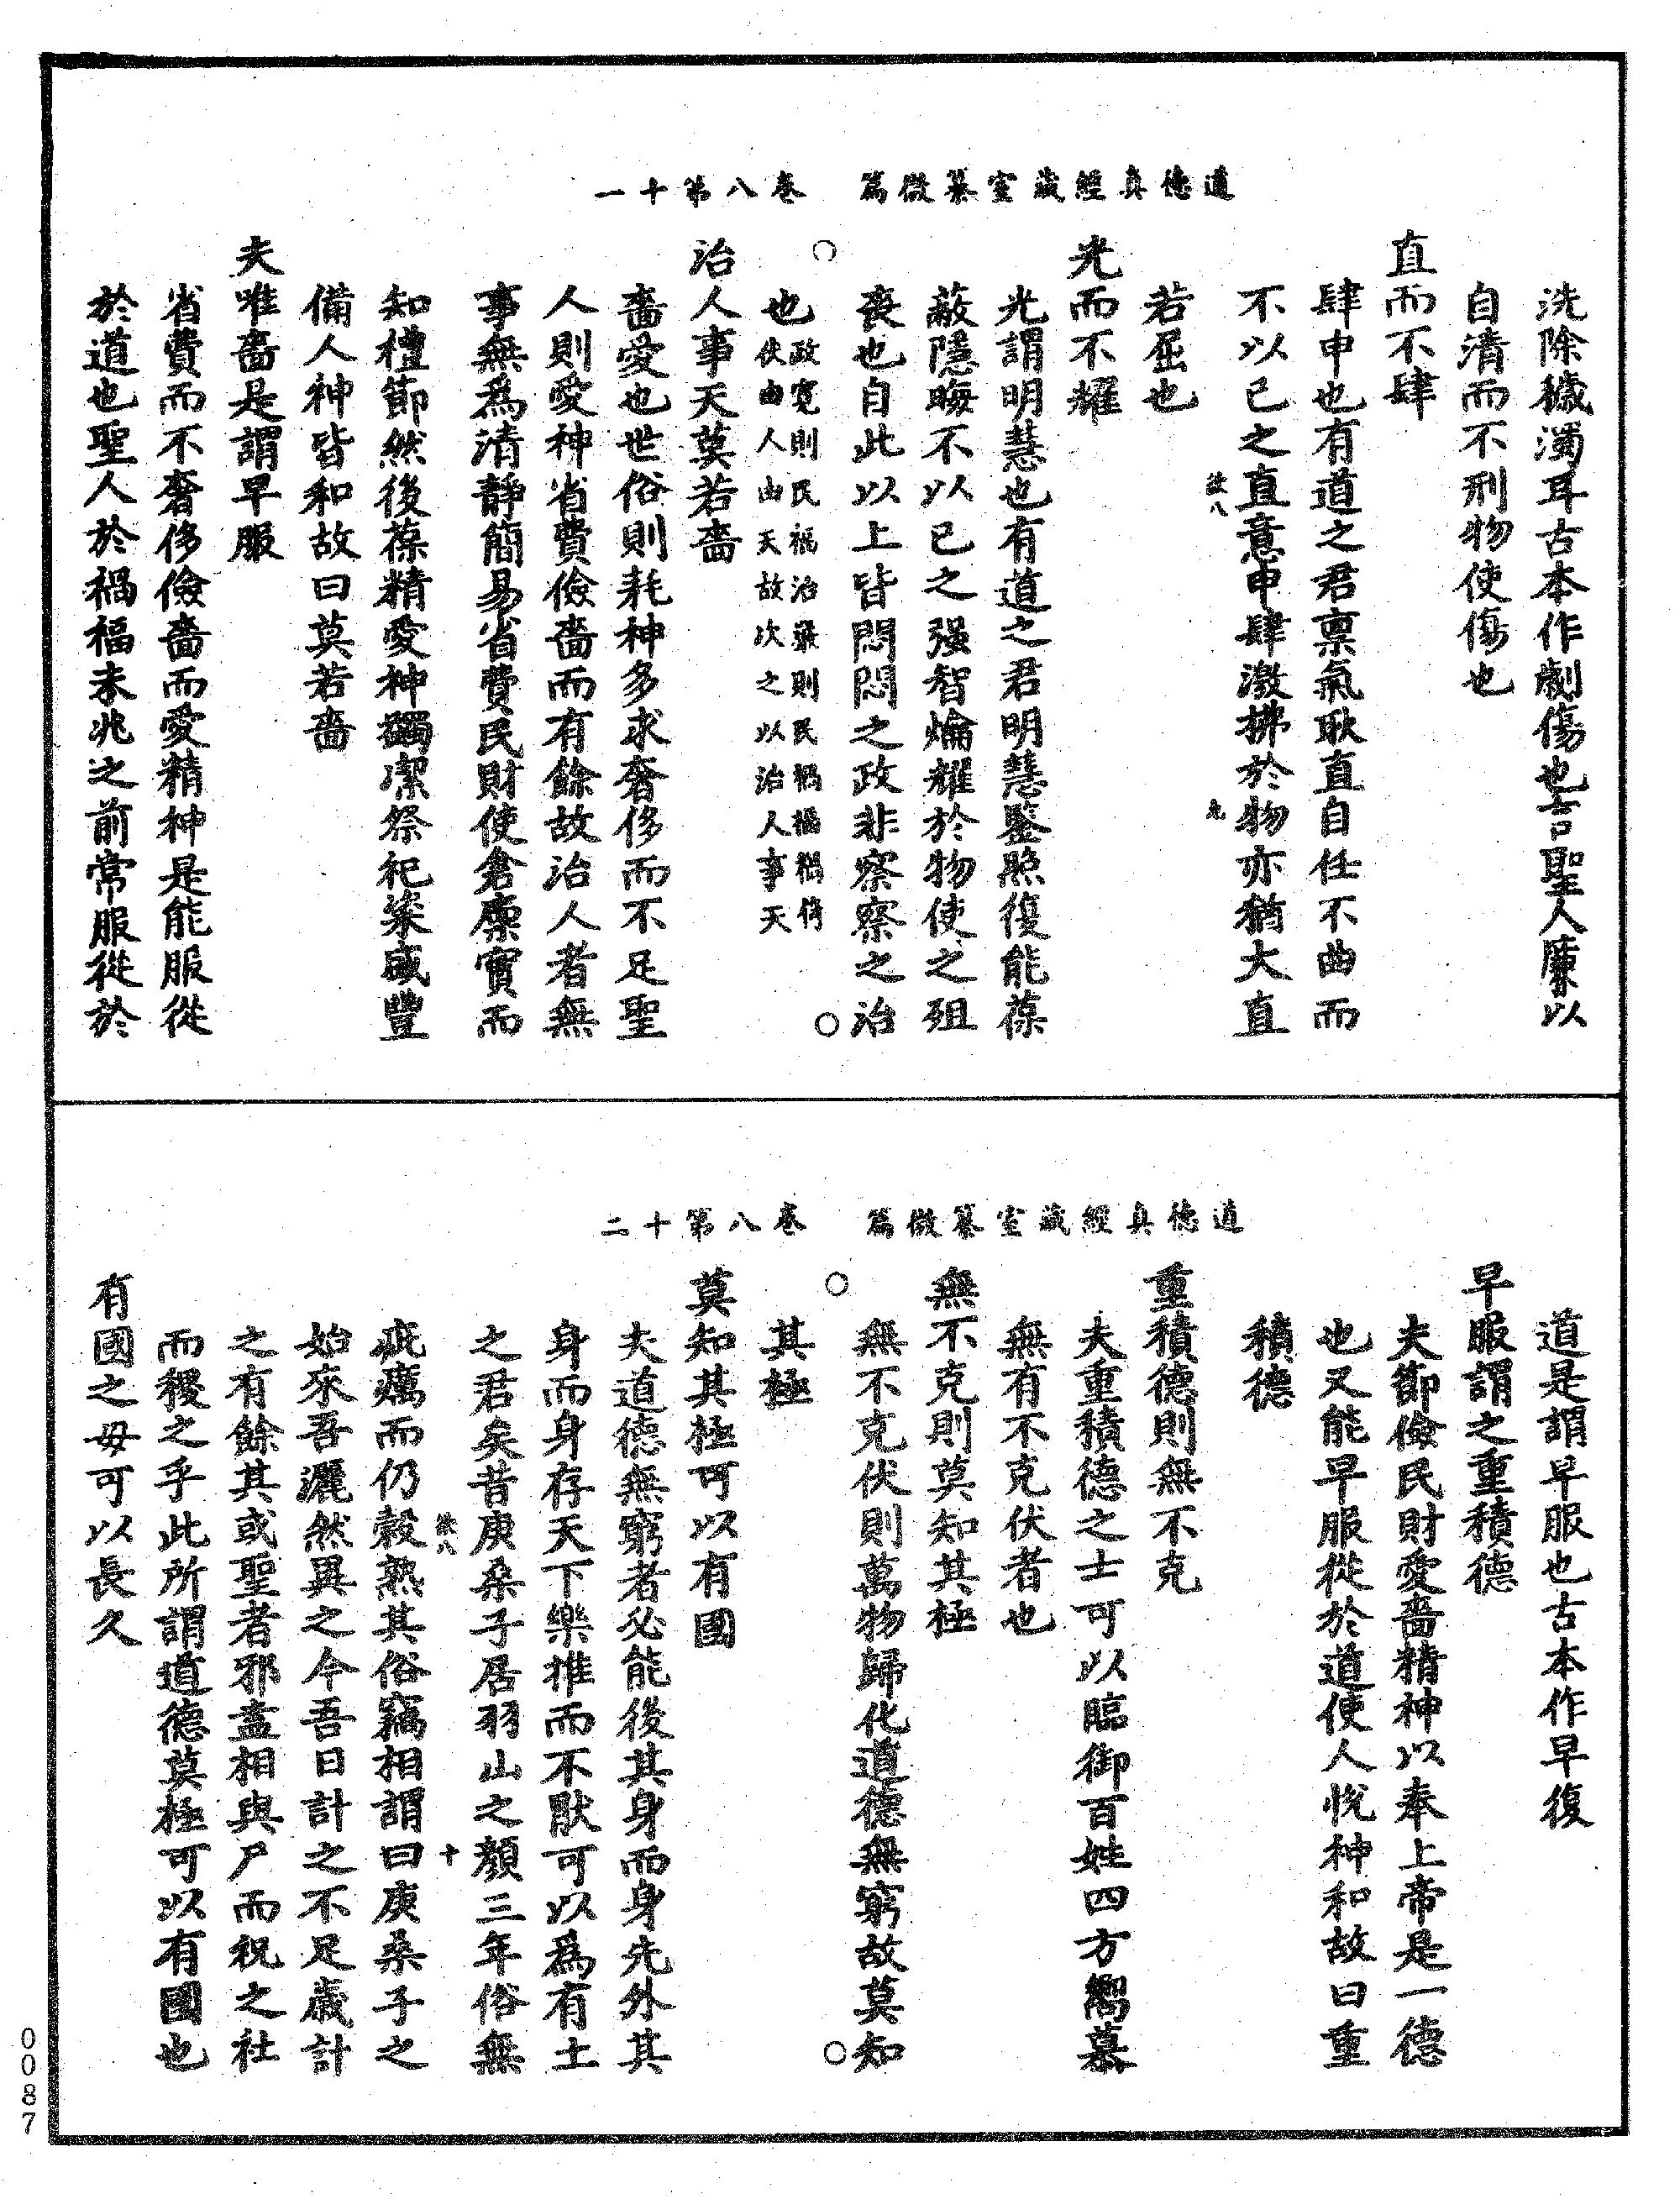 道德真經藏室纂微篇　卷八第十一
洗除穢濁耳古本作劌傷也言聖人廉以
自清而不刑物使傷也
直而不肆
肆申也有道之君稟氣耿直自任不曲而
不以已之直意申肆激拂於物亦猶大直
若屈也
光而不耀
光謂明慧也有道之君明慧鑒照復能葆
蔽隱晦不以已之强智爚耀於物使之殂
喪也自此以上皆悶悶之政非察察之治
也政寬則民福治嚴則民禍福禍倚
伏由人由天故次之以治人事天
治人事天莫若嗇
嗇愛也世俗則耗神多求奢侈而不足聖
人則愛神省費儉嗇而有餘故治人者無
事無為清靜簡易省費民財使倉廩實而
知禮節然後葆精愛神蠲潔祭祀粢盛豐
備人神皆和故曰莫若嗇
夫唯嗇是謂早服
省費而不奢侈儉嗇而愛精神是能服從
於道也聖人於禍福未兆之前常服從於
道德真經藏室纂微篇　卷八第十二
道是謂早服也古本作早復
早服謂之重積德
夫節儉民財愛嗇精神以奉上帝是一德
也又能早服從於道使人悅神和故曰重
積德
重積德則無不克
夫重積德之士可以臨御百姓四方嚮慕
無有不克伏者也
無不克則莫知其極
無不克伏則萬物歸化道德無窮故莫知
其極
莫知其極可以有國
夫道德無窮者必能後其身而身先外其
身而身存天下樂推而不猒可以為有土
之君矣昔庚桑子居羽山之顏三年俗無
疵癘而仍穀熟其俗竊相謂曰庚桑子之
始來吾灑然異之今吾日計之不足歲計
之有餘其或聖者邪盍相與尸而祝之社
而稷之乎此所謂道德莫極可以有國也
有國之毋可以長久
0087